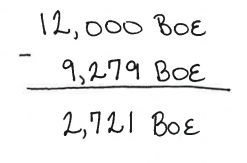 12,000 BOE
- 9,279 BOE
2,721 BOE